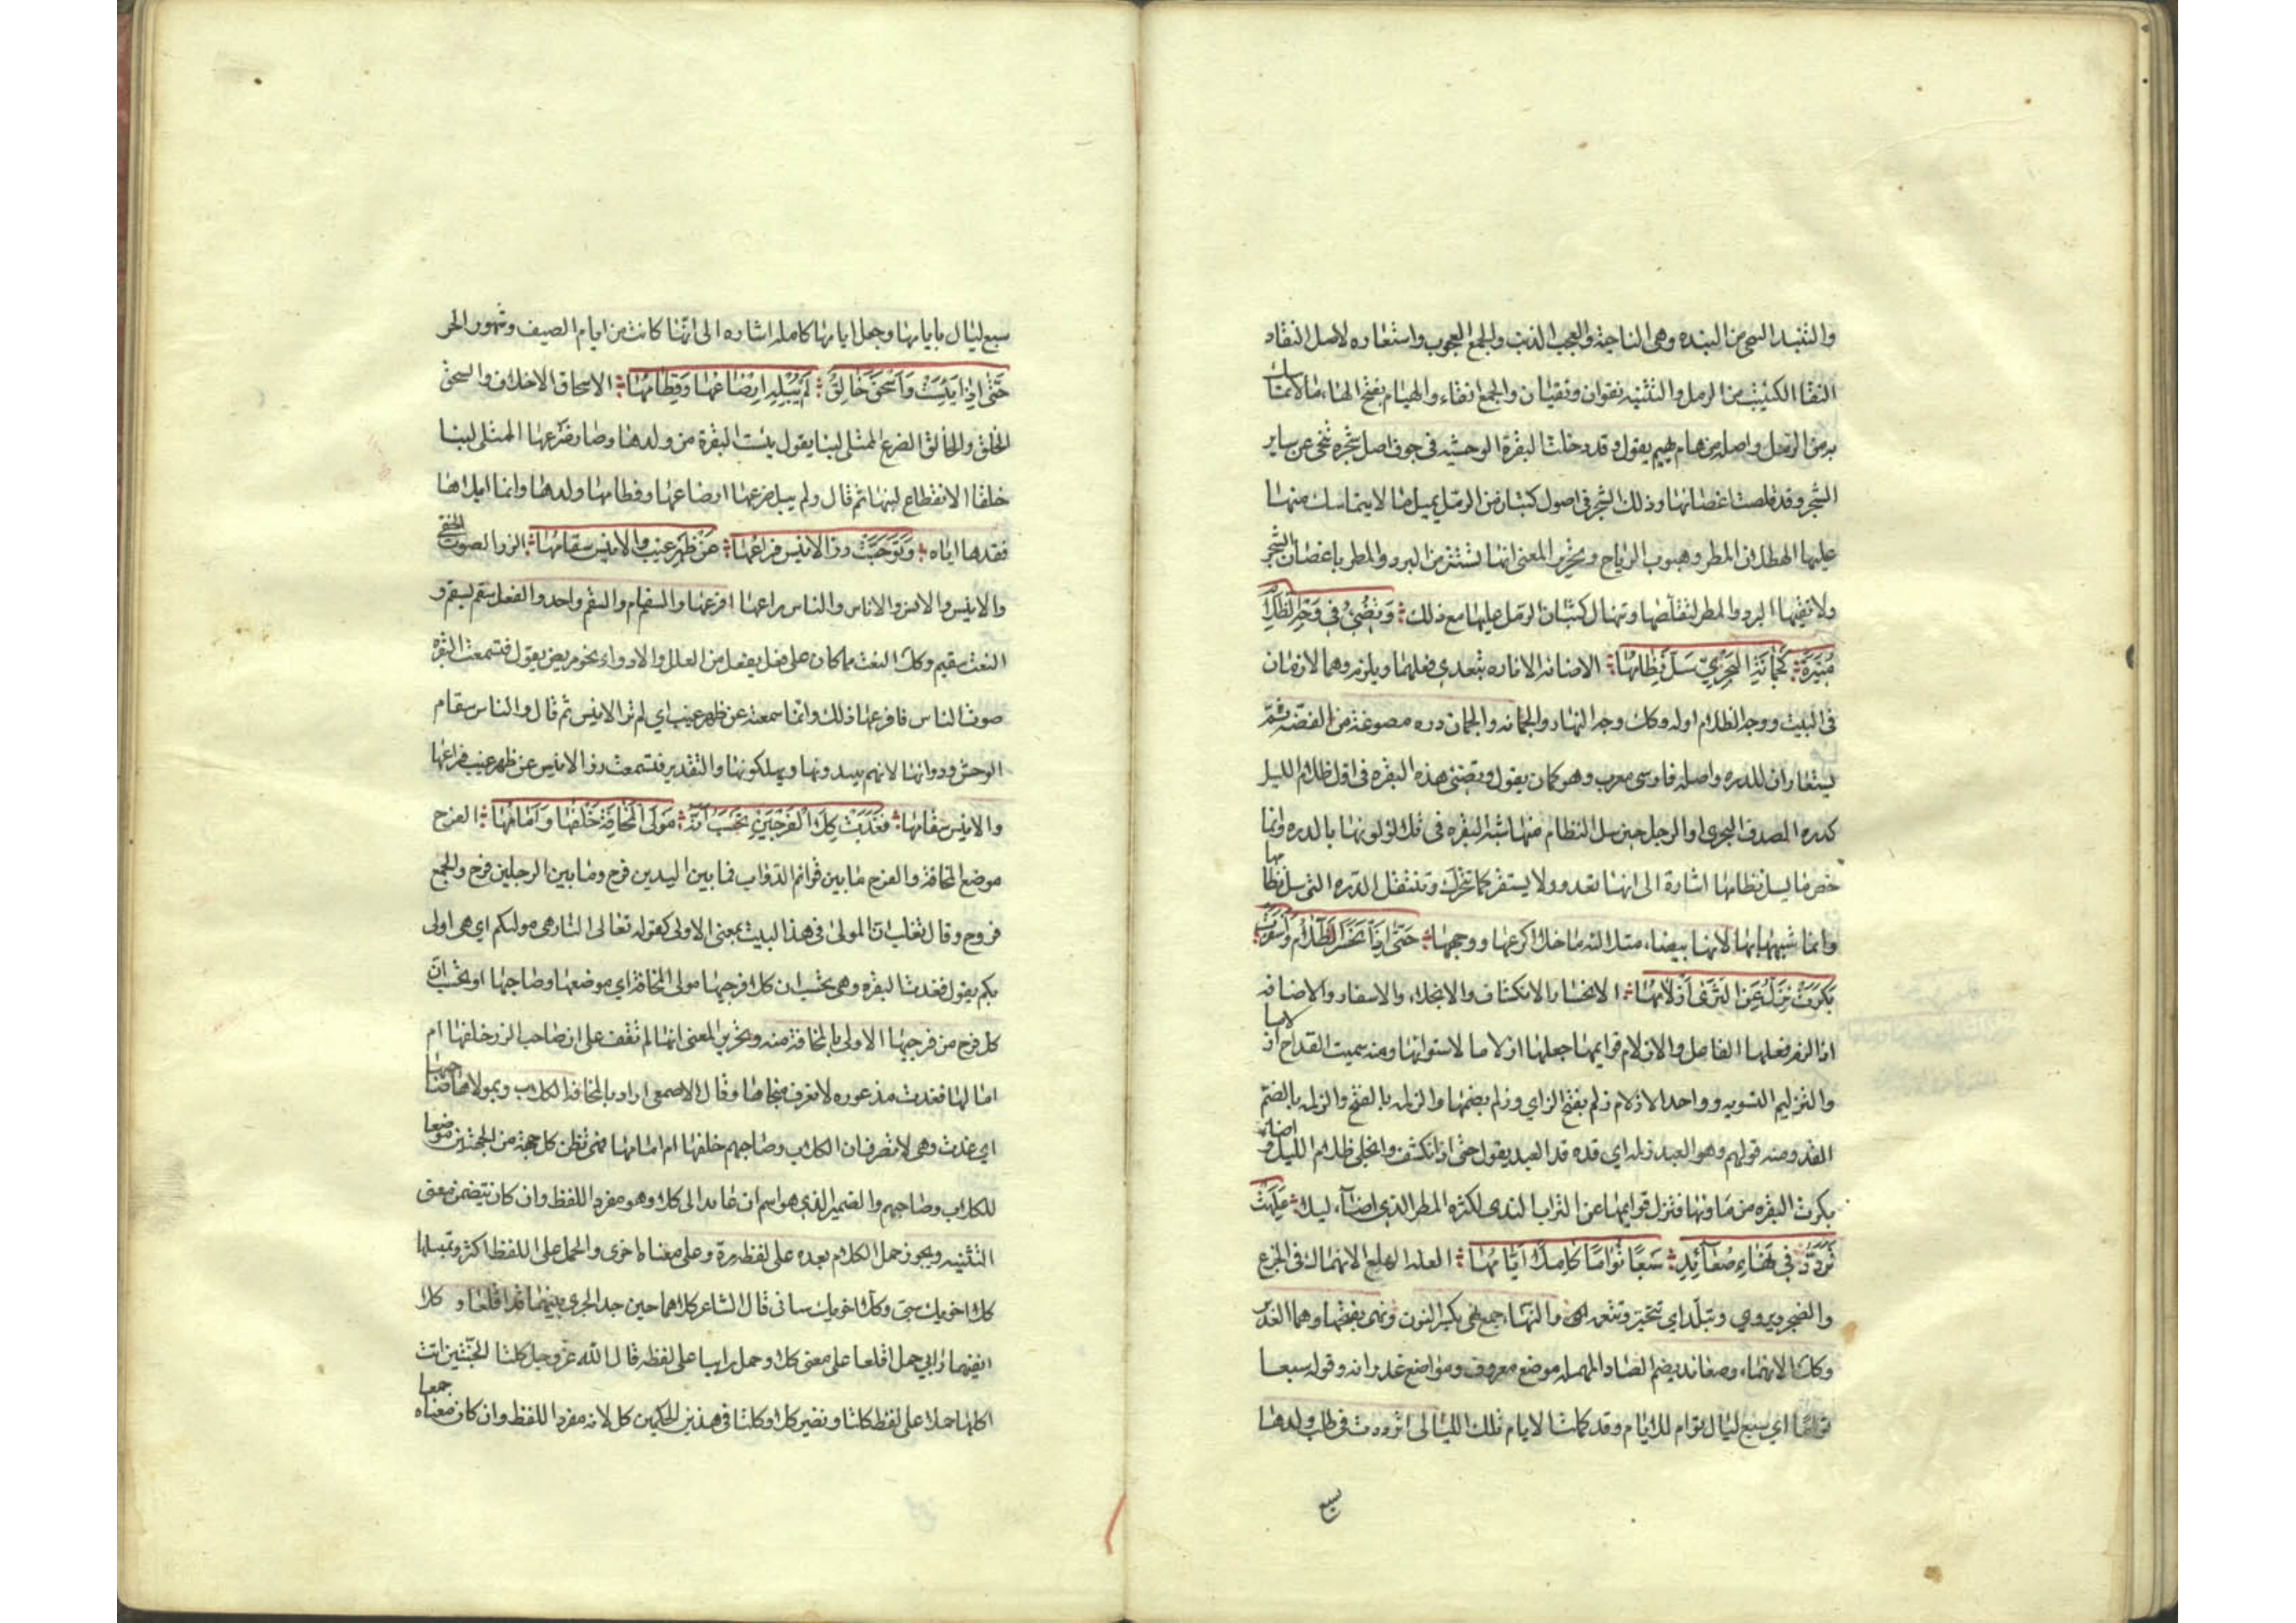 والتنبذ التنحي من النبذة وهي الناحية والعجب الذنب والجمع العجوب واستعاره لاصل النقاد
النقا الكثيب من الرمل والتثنيه نقوان ونقيان والجمع انقاء والهيام بفتح الهاء مالا تماسك
به من الرمل واصله من هام يهيم يقول وقد دخلت البقرة الوحشيه في جوف اصل شجره تنحى عن ساير
الشجر وقد قلصت اغصانها وذلك الشجر في اصول كثبان من الرمل يميل ما لا يتماسك منها
عليها الهطلان المطر وهبوب الرياح وتحرير المعنى انها تستتر من البرد والمطر باغصان الشجر
ولا تقيها البرد والمطر لتقلصها وتنهال كثبان الرمل عليها مع ذلك وَتُضِيُ في وَجهِ الظلامِ
مُنيرَةً كَجُمانَةِ البَحرِيِّ سَلَّ نِظامُها الاضاءة الانارة يتعدي فعلهما ويلزم وهما لازمان
في البيت ووجه الظلام اوله وكذلك وجه النهار والجمانه والجمان دره مصوغة من الفضة ثم
يستعاران للدره واصله فارسي معرب وهو كمان يقول وتضئ هذه البقره في اول ظلام الليل
كدره الصدف البحري او الرجل حين سل النظام منها شبه البقره في تلألؤ لونها بالدره وانما
خص ما يسل نظامها اشارة الى انها تعدو ولا يستقر كما تتحرك وتنتقل الدره التي سل نظامها
وانما شبهها بها لانها بيضاء متلالئة ما خلا اكرعها ووجهها حَتّى اِذا انحَسَرَ الظَلامُ وَاَسفَرَت
بَكَرَت تَزِلُّ عَنِ الثَرى اَزلامُها الانحسار الانكشاف والانجلاء والاسفار والاضاءه
اذا لزم فعلها الفاعل والازلام قوايمها جعلها ازلاما لاستوائها ومنه سميت القداح ازلاما
والتزليم التسويه وواحد الازلام زلم بفتح الزاي وزلم بضمها والزلمه بالفتح والزلمه بالضم
القد ومنه قولهم وهو العبد زلمه اي قده قد العبد يقول حتى اذا انكشف وانجلى ظلام الليل واضائه
بكرت البقره من ماونها فتزل قوايمها عن التراب الندى لكثره المطر الذي اصابه ليلا عَلِهَت
تَرَدَّدُ في نِهاءِ صُعائِدٍ سَبعًا تُوامًا كامِلًا اَيّامُها العله والهلع الانهماك في الجزع
والضجر ويروي وتبلد اي تتحير وتتعمه والنهاء جمع نهي بكسر النون ونهى بفتحها وهما الغدير
وكذلك الانهاء وصعائد بضم الصاد المهمله موضع معروف ومواضع غدرانه وقوله سبعا
توامًا اي سبع ليال توام للايام وقد كملت الايام تلك الليالى اترددت في طلب ولدها
سبع
سبع ليال بايامها وجعل ايامها كامله اشاره الى انها كانت من ايام الصيف وشهور الحر
حَتّى اِذا يَئِسَت وَاَسحَقَ حالِقٌ لَم يُبلِهِ اِرضاعُها وَفِطامُها الاسحاق الاخلاق والسحق
الخلق والحالق الضرع الممتلى لبنا يقول يئست البقرة من ولدها وصار ضرعها الممتلى لبنا
خلقا لانقطاع لبنها ثم قال ولم يبل ضرعها ارضاعها وفطامها ولدها وانما ابلاها
فقدها اياه وَتَوَجَّسَت رزّ الانيس فراعها عَن ظَهرِ غَيبٍ والانيس سقامُها الرز الصوت الخفي
والانيس والانس والاناس والناس راعها افزعها والسقام والسقم واحد والفعل سقم يسقم و
النعت سقيم وكذلك النعت مما كان على فعل يفعل من العلل والادواء نحو مرض يقول فتسمعت البقره
صوت الناس فافزعها ذلك وانما سمعته عن ظهر غيب اي لم تر الانيس ثم قال والناس سقام
الوحش ودوائها لانهم يصيدونها ويهلكونها والتقدير فتسمعت رز الانيس عن ظهر غيب فراعها
والانيس سقامها فَغَدَت كِلا الفَرجَينِ تَحسَبُ اَنَّهُ مَولَى المَخافَةِ خَلفُها وَاَمامُها الفرج
موضع المخافة والفرج ما بين قوائم الدواب فما بين اليدين فرج وما بين الرجلين فرج والجمع
فروج وقال ثعلب ان المولى في هذا البيت بمعنى الاولى كقوله تعالى النار هي مولاكم اي هي اولى
بكم يقول فغدت البقره وهي تحسب ان كلا فرجيها مولى المخافة اي موضعها وصاحبها او تحسب ان
كل فرج من فرجيها الاولى بالمخافة منه وتحرير المعنى انها لم تقف على ان صاحب الرز خلفها ام
امامها فغدت مذعوره لا تعرف منجاها وقال الاصمعي اراد بالمخافة الكلاب وبمولاها صاحبها
اي غدت وهي لا تعرف ان الكلاب وصاحبهم خلفها ام امامها فهي تظن كل جهة من الجهتين موضعا
للكلاب وصاحبهم والضمير الذي هو اسم ان عائد الى كلا وهو مفرد اللفظ وان كان يتضمن معنى
التثنيه ويجوز حمل الكلام بعده على لفظه مرة وعلى معناه اخرى والحمل على اللفظ اكثر وتمثيلها
كلا اخويك سبني وكلا اخويك سباني قال الشاعر كلاهما حين جد الجرى بينهما قد اقلعا و كلا
انفيهما رابي حمل اقلعا على معنى كلا وحمل رابيا على لفظه قال الله عز وجل كلتا الجنتين اتت
اكلها حملا على لفظ كلتا ونظير كلا وكلتا في هذين الحكمين كل لانه مفرد اللفظ وان كان معناه جمعا